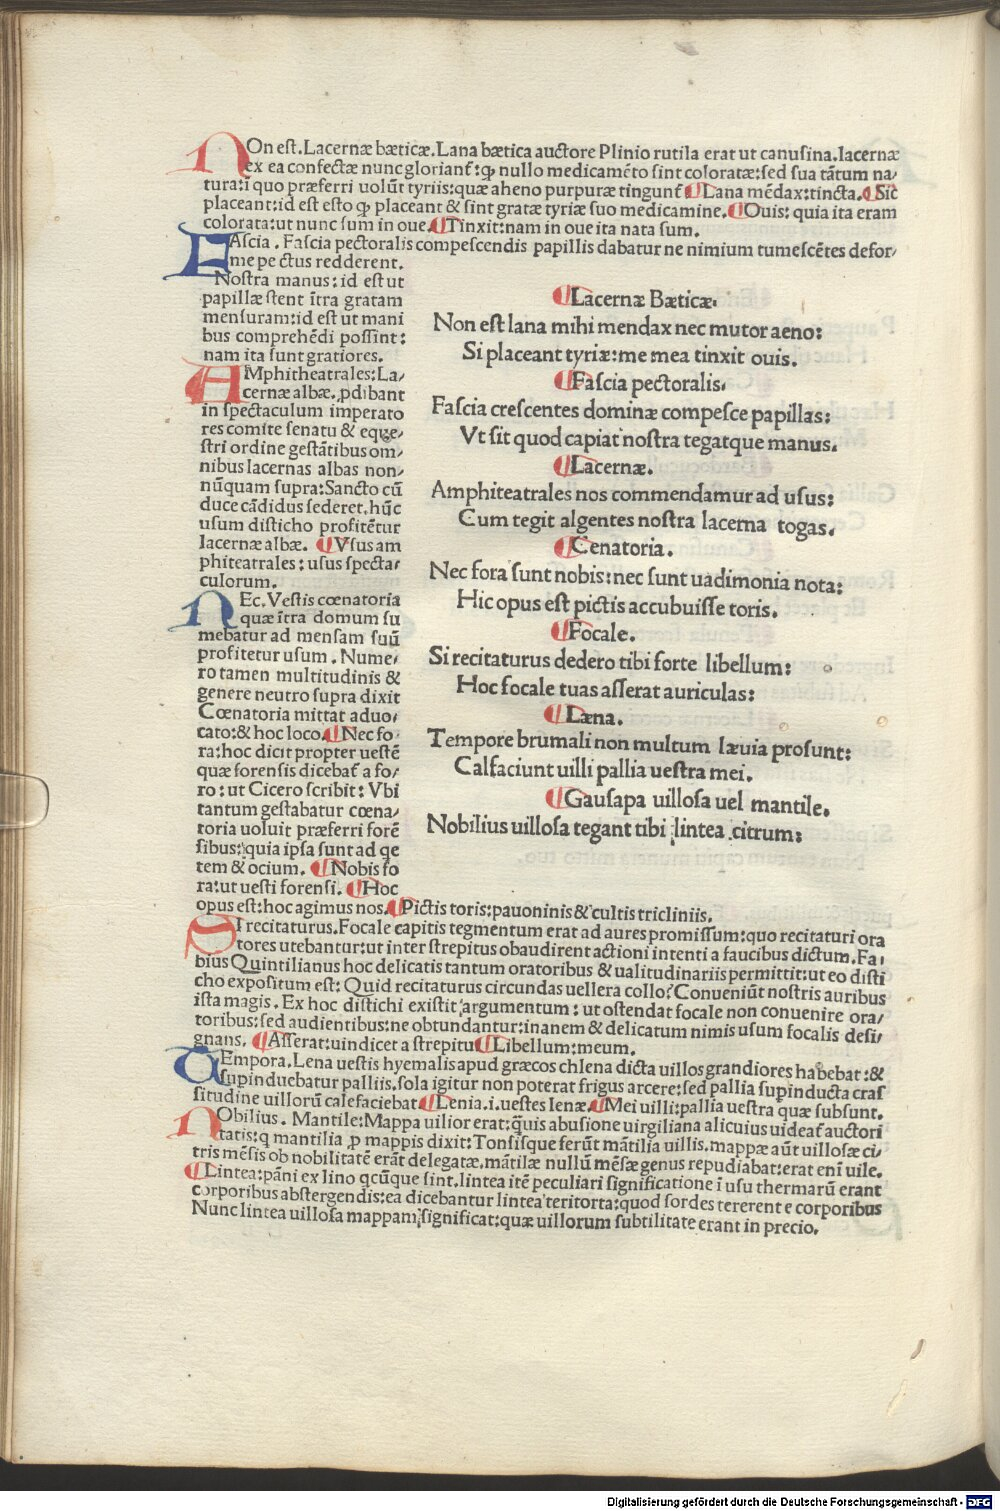 NOn est. Lacernæ bæticæ. Lana bætica auctore Plinio rutila erat ut canusina. lacernæ
ex ea confectæ nunc gloriant᷑: ꝙ nullo medicamēto sint coloratæ: sed sua tātum na/
tura: ī quo præferri uolūt tyriis: quæ aheno purpuræ tingunt᷑ ¶Lana mēdax: tincta. ¶Sic
placeant: id est esto ꝙ placeant & sint gratæ tyriæ suo medicamine. ¶Ouis: quia ita eram
colorata: ut nunc sum in oue. ¶Tinxit: nam in oue ita nata sum.
FAscia. Fascia pectoralis compescendis papillis dabatur ne nimium tumescētes defor/
me pectus redderent.
Nostra manus: id est ut
papillæ stent ītra gratam
mensuram: id est ut mani
bus comprehēdi possint:
nam ita sunt gratiores.
AMphitheatrales: La/
cernæ albæ. ꝓdibant
in spectaculum imperato
res comite senatu & eque/
stri ordine gestātibus om/
nibus lacernas albas non/
nūquam supra: Sancto cū
duce cādidus sederet. hūc
usum disticho profitētur
lacernæ albæ. ¶Vsus am
phiteatrales: usus specta/
culorum.
NEc. Vestis cœnatoria
quæ ītra domum su
mebatur ad mensam suū
profitetur usum. Nume/
ro tamen multitudinis &
genere neutro supra dixit
Cœnatoria mittat aduo/
cato: & hoc loco. ¶Nec fo
ra: hoc dicit propter uestē
quæ forensis dicebat᷑ a fo/
ro: ut Cicero scribit: Vbi
tantum gestabatur cœna/
toria uoluit præferri forē
sibus: quia ipsa sunt ad qe
tem & ocium. ¶Nobis fo
ra: ut uesti forensi. ¶Hoc
opus est: hoc agimus nos. ¶Pictis toris: pauoninis & cultis tricliniis.
¶Lacernæ Bæticæ.
Non est lana mihi mendax nec mutor aeno:
Si placeant tyriæ: me mea tinxit ouis.
¶Fascia pectoralis.
Fascia crescentes dominæ compesce papillas:
Vt sit quod capiat nostra tegatque manus.
¶Lacernæ.
Amphiteatrales nos commendamur ad usus:
Cum tegit algentes nostra lacerna togas.
¶Cenatoria.
Nec fora sunt nobis: nec sunt uadimonia nota:
Hic opus est pictis accubuisse toris.
¶Focale.
Si recitaturus dedero tibi forte libellum:
Hoc focale tuas asserat auriculas:
¶Læna.
Tempore brumali non multum læuia prosunt:
Calfaciunt uilli pallia uestra mei.
¶Gausapa uillosa uel mantile.
Nobilius uillosa tegant tibi lintea citrum:
SI recitaturus. Focale capitis tegmentum erat ad aures promissum: quo recitaturi ora
tores utebantur: ut inter strepitus obaudirent actioni intenti a faucibus dictum. Fa/
bius Quintilianus hoc delicatis tantum oratoribus & ualitudinariis permittit: ut eo disti
cho expositum est: Quid recitaturus circundas uellera collo? Conueniūt nostris auribus
ista magis. Ex hoc distichi existit argumentum: ut ostendat focale non conuenire ora/
toribus: sed audientibus: ne obtundantur: inanem & delicatum nimis usum focalis desi/
gnans. ¶Asserat: uindicet a strepitu ¶Libellum: meum.
TEmpora. Lena uestis hyemalis apud græcos chlena dicta uillos grandiores habebat: &
supinduebatur palliis. sola igitur non poterat frigus arcere: sed pallia supinducta cras
situdine uillorū calefaciebat ¶Lenia. i. uestes lenæ. ¶Mei uilli: pallia uestra quæ subsunt.
NObilius. Mantile: Mappa uilior erat: q̄uis abusione uirgiliana alicuius uideat᷑ auctori
tatis: q mantilia ꝓ mappis dixit: Tonsisque ferūt mātilia uillis. mappæ aūt uillosæ ci/
tris mēsis ob nobilitatē erāt delegatæ. mātilæ nullū mēsæ genus repudiabat: erat enī uile.
¶Lintea: pāni ex lino qcūque sint. lintea itē peculiari significatione ī usu thermarū erant
corporibus abstergendis: ea dicebantur lintea teritorta: quod sordes tererent e corporibus
Nunc lintea uillosa mappam significat: quæ uillorum subtilitate erant in precio.
Digitalisierung gefördert durch die Deutsche Forschungsgemeinschaft - DFG